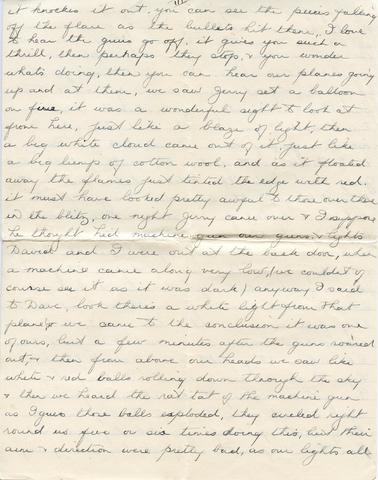 it knockes it out, you can see the pieces falling
off the flare as the bullets hit them, I love
to hear the guns go off, it gives you such a
thrill, then perhaps they stop, & you wonder
whats doing, then you can hear our planes going
up and at them, we saw Jerry set a balloon
on fire, it was a wonderful sight to look at
from here, just like a blaze of light, then
a big white cloud came out of it, just like
a big lump of cotton wool, and as it floated
away the flames just tinted the edge with red.
it must have looked pretty awful to those over there
in the blitz, one night Jerry came over & I suppose
he thought he'd machine gun our guns & lights
David and I were out at the back door, when
a machine came along very low, (we couldn't of
course see it as it was dark) anyway I said
to Dave, look there's a white light from that
plane & we came to the conclusion it was one
of ours, but a few minutes after the guns soared
out, & then from above our heads we saw like
white & red balls rolling down through the sky
& then we heard the rat tat of the machine gun
as I guess those balls exploded, they circled right
round us five or six times doing this, but their
aim & direction were pretty bad, as our lights all